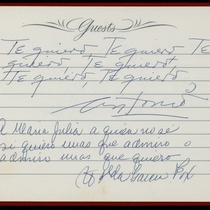 Guests
Te quiero, Te quiero Te
quiero, Te quiero,
Te quiero, Te quiero
Antonio
A Maria Julia a quien no se
si quiero mas que admiro o
admiro mas que quiero